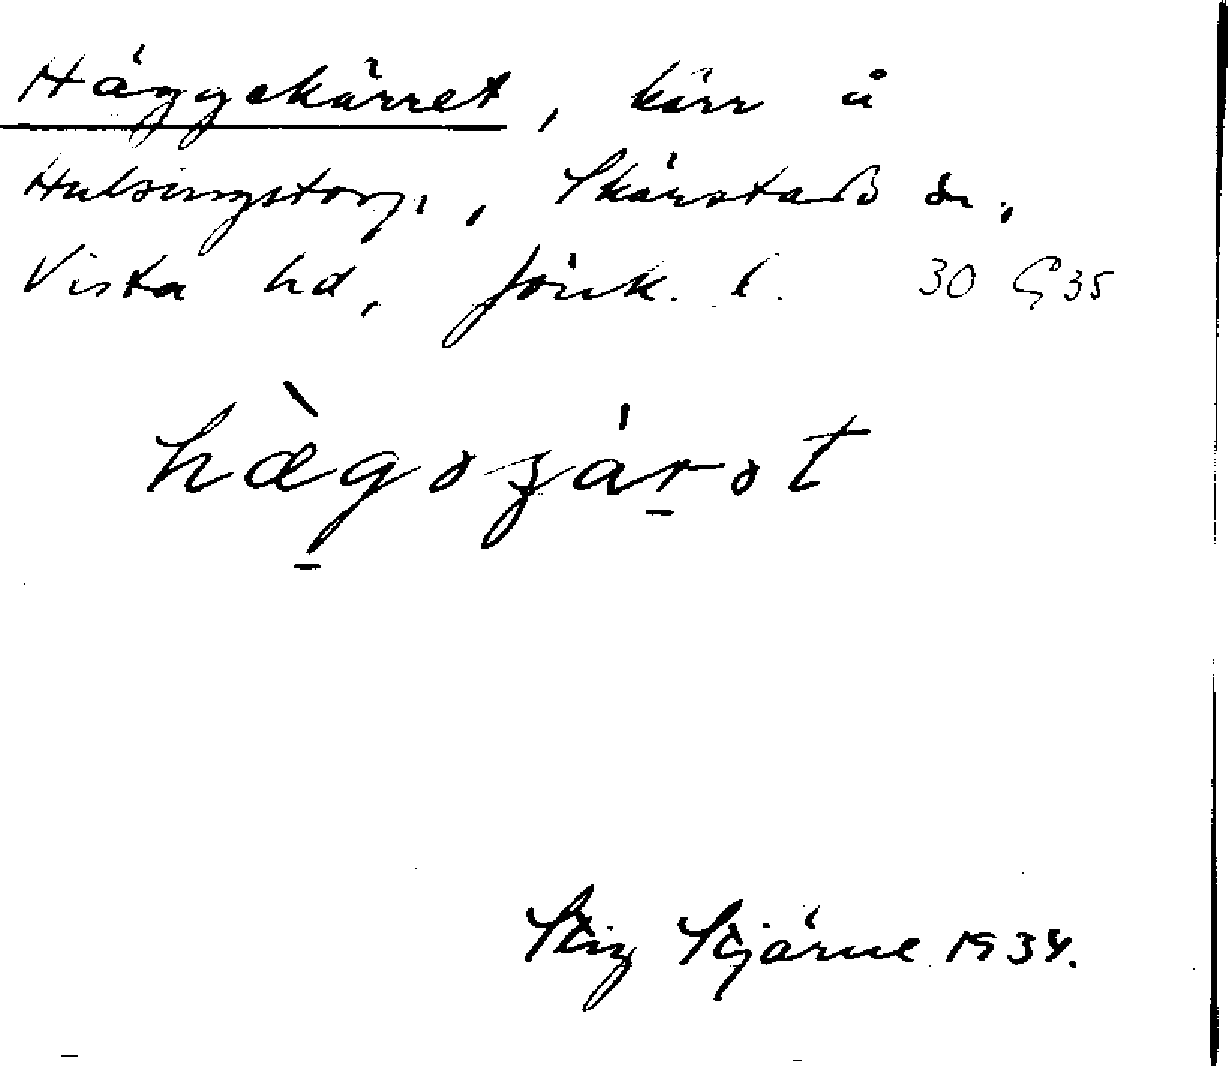 Häggekärret, kärr å
Hulsingstorp, Skärstads sn,
Vista hd, Jönk. l. 30 G 35
hæ̀gəʒárət
Stig Stjärne 1934.